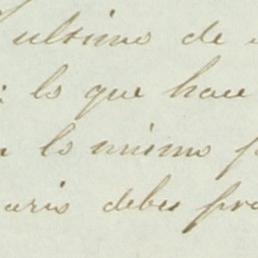 ultimo de
: lo que hace
lo mismo p
ario debes pro